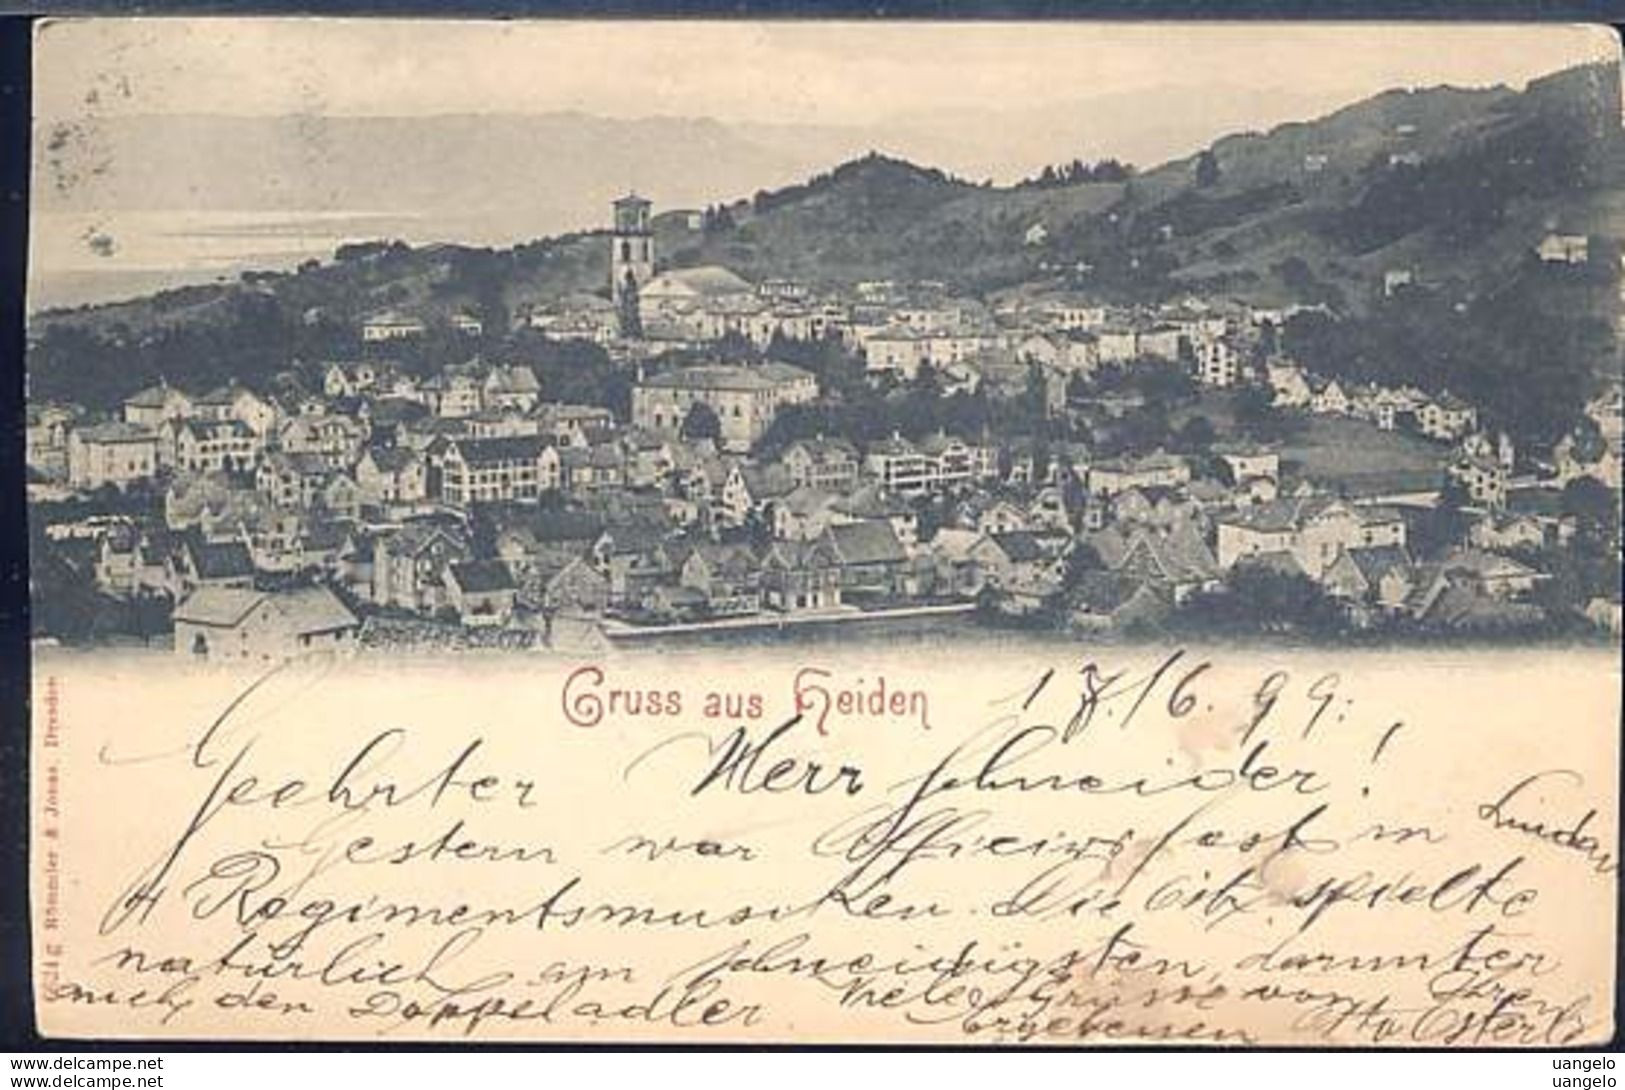 Gruss aus Heiden
17./6. 99.
Geehrter Herr Schneider!
Gestern war Offiziersfest in Lindau
4 Regimentsmusiken. Die spielte
natürlich am schneidigsten, darunter
auch den Doppeladler Viele Grüsse von Ihrem
Ergebenen Otto
Verlag Römmler & Jonas, Dresden
www.delcampe.net
www.delcampe.net
uangelo
uangelo